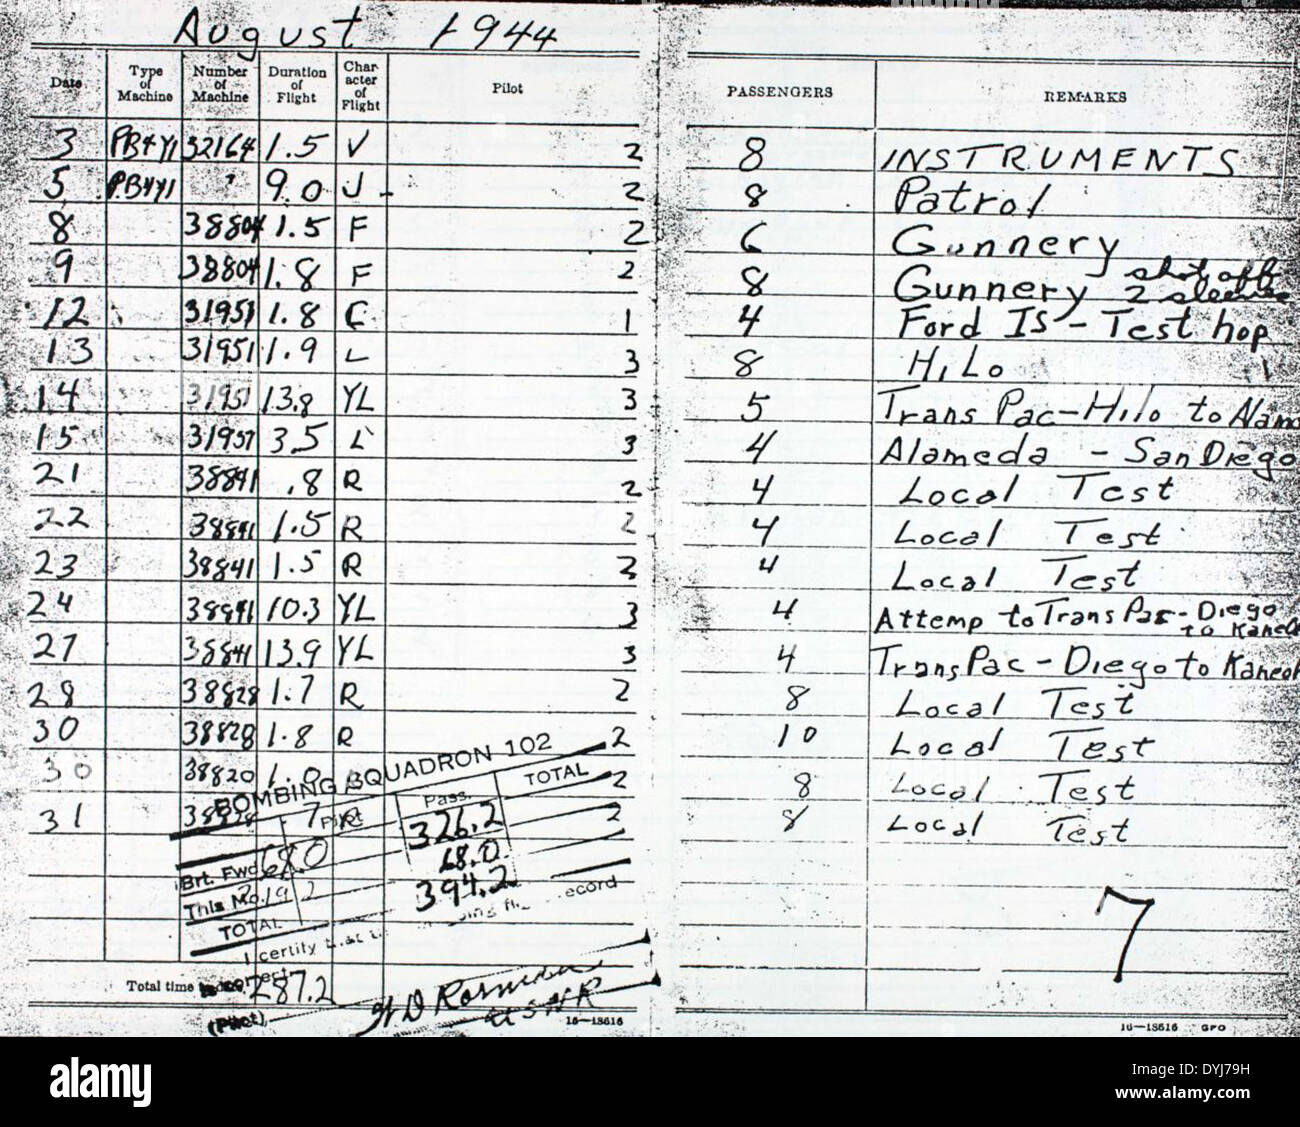 August 1944
Date Type of Machine Number of Machine Duration of Flight Character of Flight Pilot PASSENGERS REMARKS
3 PB4Y1 32164 1.5 V 2 8 INSTRUMENTS
5 PB4Y1 " 9.0 J - 2 8 Patrol
8 38804 1.5 F 2 6 Gunnery
9 38804 1.8 F 2 8 Gunnery shot off 2 sleeves
12 31951 1.8 C 1 4 Ford IS - Test hop
13 31951 1.9 L 3 8 HiLo
14 31951 13.8 YL 3 5 Trans Pac-Hilo to Alam
15 31951 3.5 L 3 4 Alameda - San Diego
21 38841 .8 R 2 4 Local Test
22 38841 1.5 R 2 4 Local Test
23 38841 1.5 R 2 4 Local Test
24 38841 10.3 YL 3 4 Attemp to Trans Pac - Diego to Kaneo
27 38841 13.9 YL 3 4 Trans Pac - Diego to Kaneoh
28 38828 1.7 R 2 8 Local Test
30 38828 1.8 R 2 10 Local Test
30 38820 1.0 2 8 Local Test
31 38828 .7 R 2 8 Local Test
BOMBING SQUADRON 102
Pilot Pass. TOTAL
Brt. Fwd 68.0 326.2
This Mo. 19 2 68.0
TOTAL 394.2
I certify that
record
correct
7
Total time to date, 287.2
(Pilot)
USNR
16—18616
16—18616 GPO
alamy
Image ID: DYJ79H
www.alamy.com